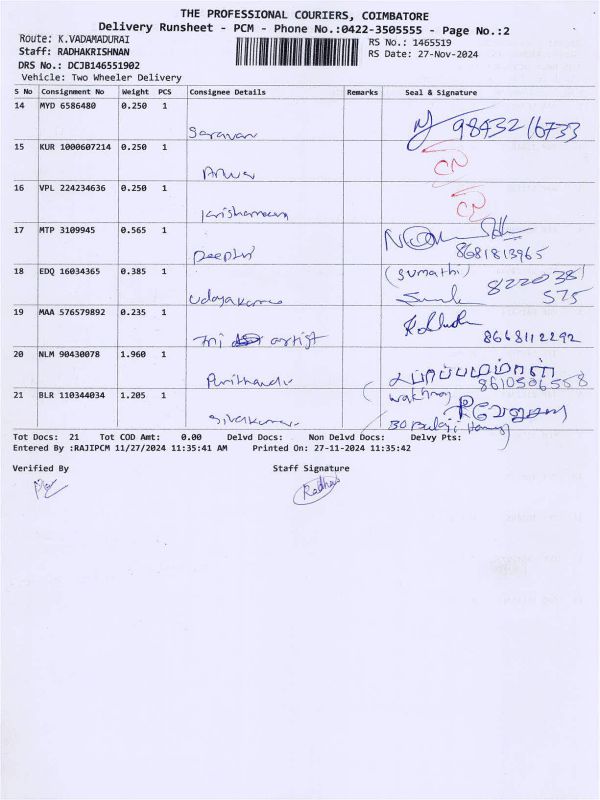 THE PROFESSIONAL COURIERS, COIMBATORE
Delivery Runsheet - PCM - Phone No.:0422-3505555 - Page No.:2
Route: K.VADAMADURAI
RS No.: 1465519
Staff: RADHAKRISHNAN
RS Date: 27-Nov-2024
DRS No.: DCJB146551902
Vehicle: Two Wheeler Delivery
S No Consignment No Weight PCS Consignee Details Remarks Seal & Signature
14 MYD 6586480 0.250 1
Saravan 9843216733
15 KUR 1000607214 0.250 1
CN
16 VPL 224234636 0.250 1
CN
17 MTP 3109945 0.565 1
Deepthi 8681813965
18 EDQ 16034365 0.385 1 (Sumathi) 8220381
Udayakumar 575
19 MAA 576579892 0.235 1
artist 8668112292
20 NLM 90430078 1.960 1
8610506558
21 BLR 110344034 1.205 1
Sivakumar
Tot Docs: 21 Tot COD Amt: 0.00 Delvd Docs: Non Delvd Docs: Delvy Pts:
Entered By :RAJIPCM 11/27/2024 11:35:41 AM Printed On: 27-11-2024 11:35:42
Verified By Staff Signature
Radha